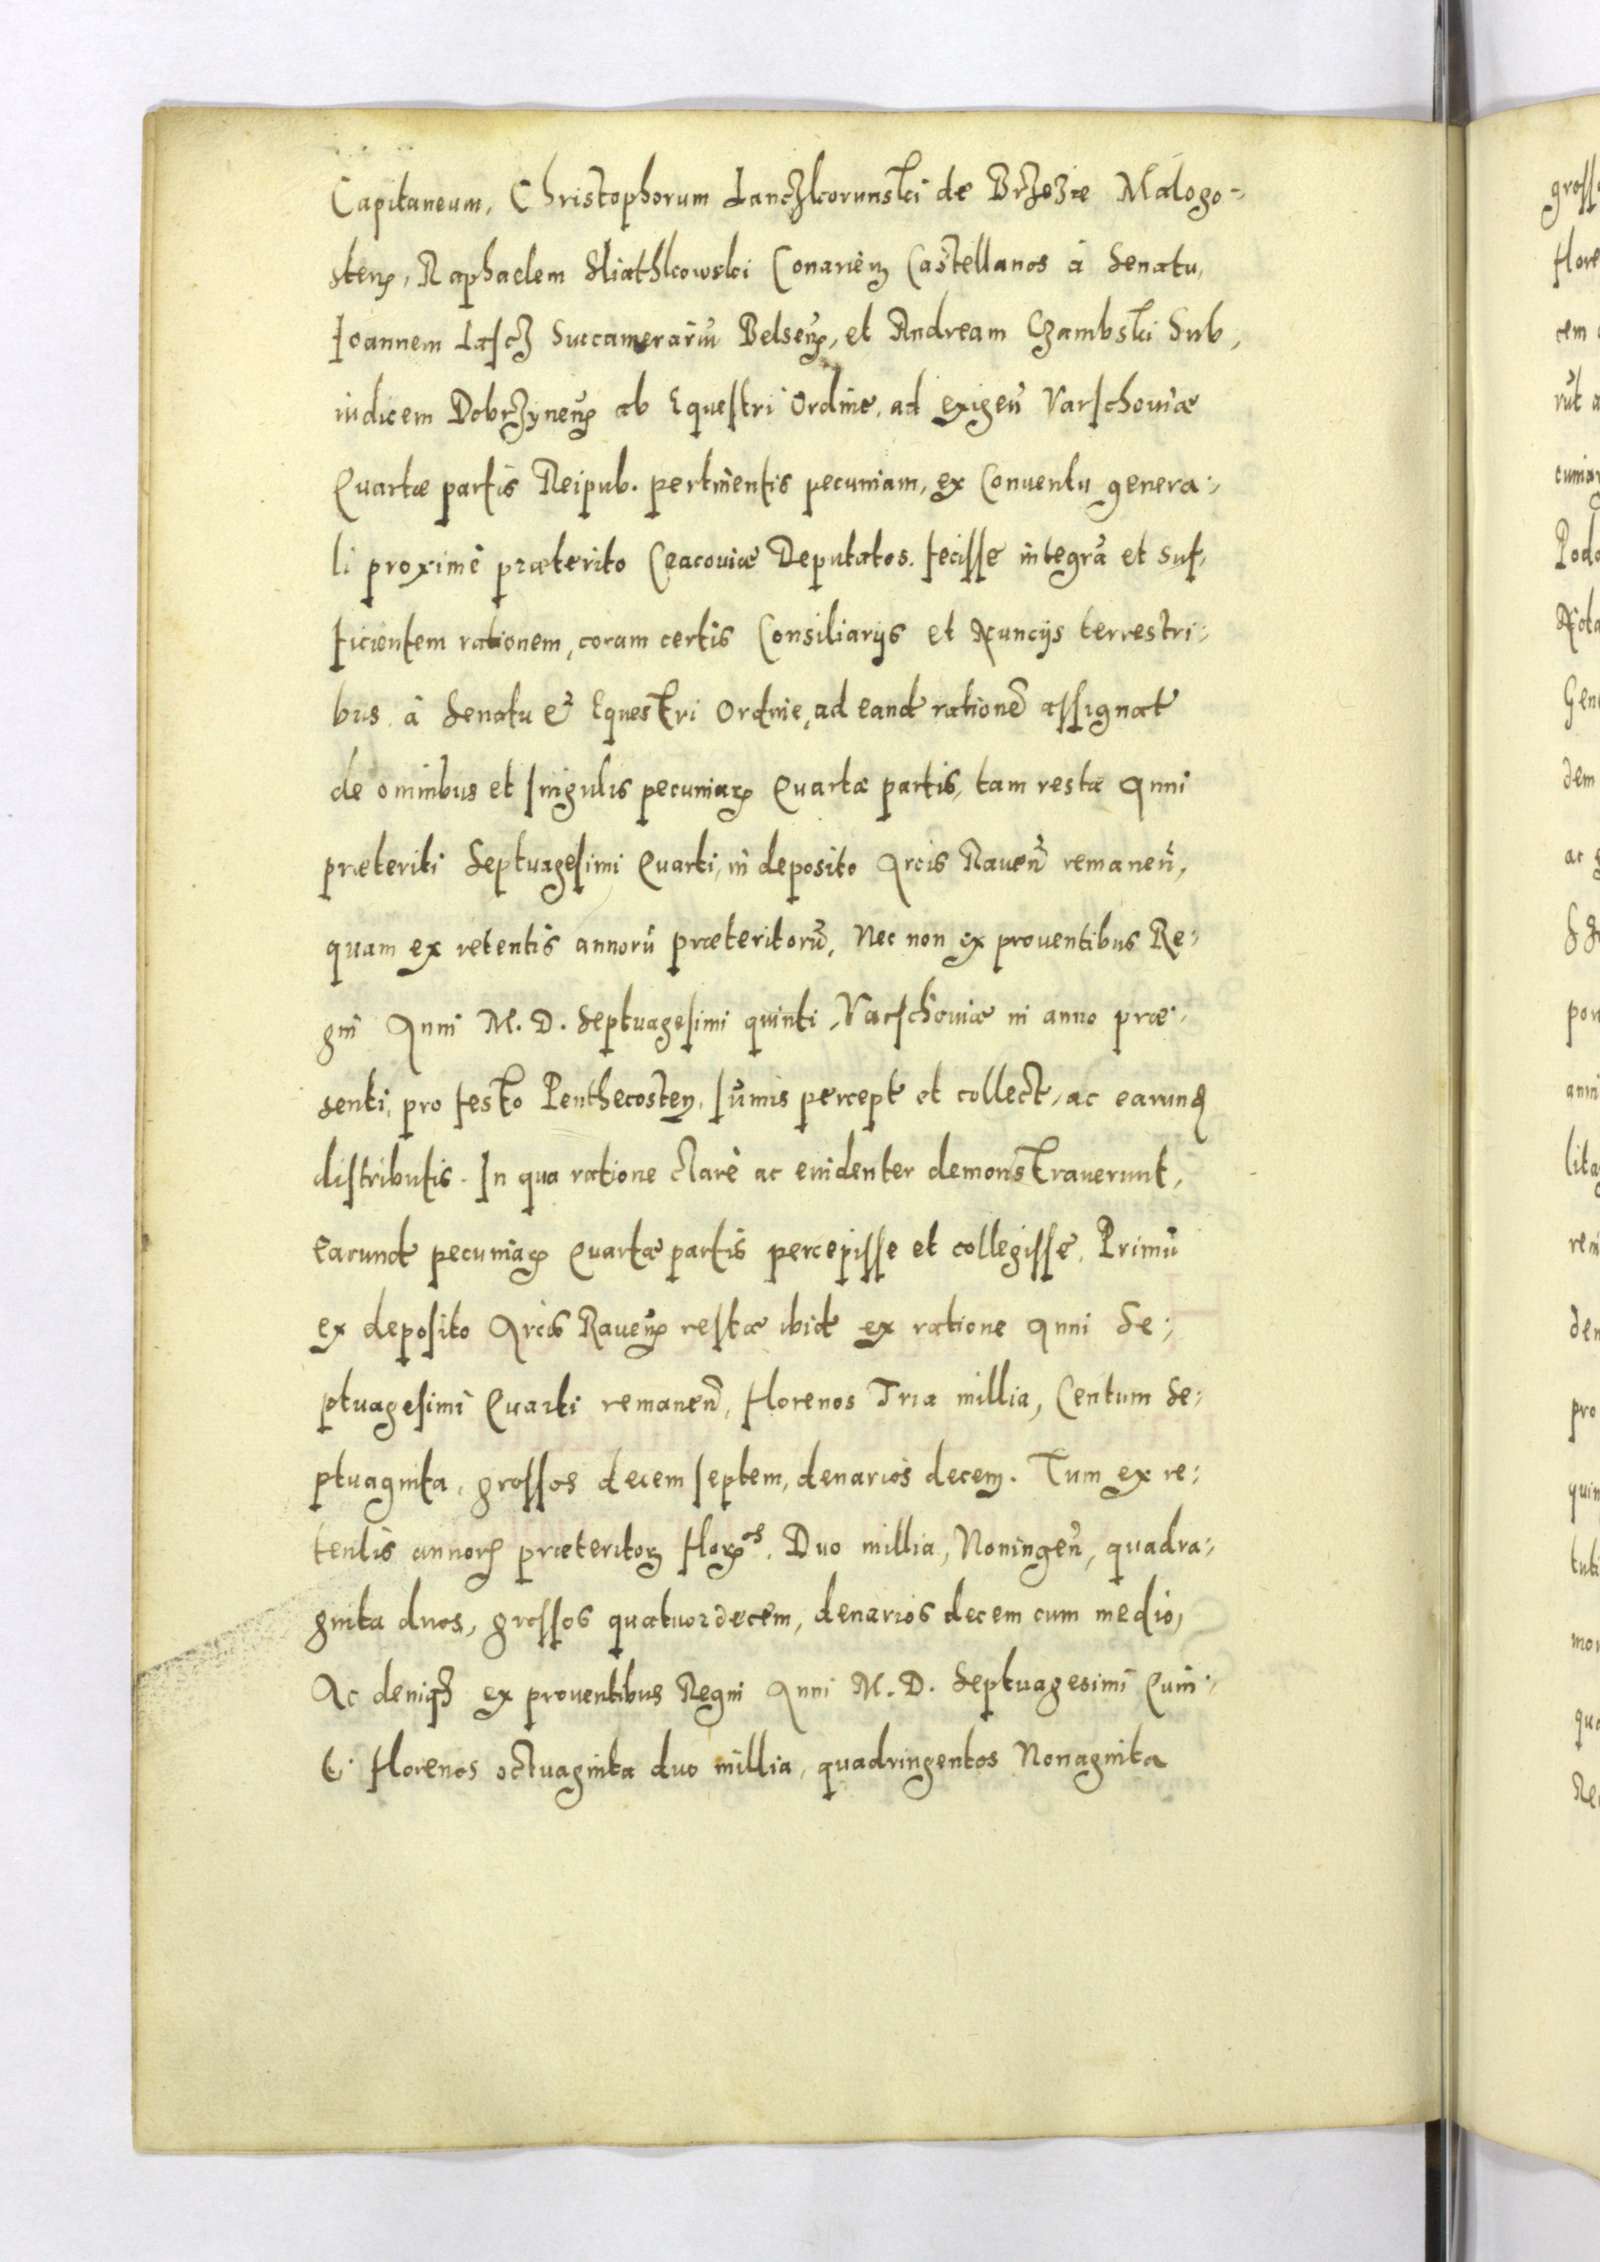 Capitaneum, Christophorum Lanczkorunski de Brzezie Malogo-
sten, Raphaelem Sliathkowski Conarien Castellanos à Senatu,
Ioannem Łasch Succamerariũ Belsen, et Andream Czambski Sub,
iudicem Dobrzynen ab Equestri Ordine, ad exigeñ Varschouiæ
Quartæ partis Reipub. pertinentis pecuniam, ex Conuentu genera:,
li proximè præterito Cracouiæ Deputatos. fecisse integrã et suf,
ficientem rationem, coram certis Consiliarijs et Nuncijs terrestri:,
bus à Senatu et Equestri Ordine, ad eand rationẽ assignat
de omnibus et singulis pecuniar Quartæ partis, tam restæ Anni
præteriti Septuagesimi Quarti, in deposito Arcis Raueñ remaneñ,
quam ex retentis annorũ præteritorũ, Nec non ex prouentibus Re:,
gni Anni M. D. Septuagesimi quinti, Varschouiæ in anno præ:,
senti, pro festo Penthecosten, sũmis percept et collect, ac earund
distributis. In qua ratione clarè ac euidenter demonstrauerunt,
Earund pecuniar Quartæ partis percepisse et collegisse, Primũ
ex deposito Arcis Rauen restæ ibid ex ratione Anni Se:,
ptuagesimi Quarti remaneñ, florenos Tria millia, Centum Se:,
ptuaginta, grossos decem septem, denarios decem. Tum ex re:,
tentis annor præteritor flor os. Duo millia, Noningeñ, quadra:,
ginta duos, grossos quatuordecem, denarios decem cum medio,
Ac deniqз ex prouentibus Regni Anni M. D. Septuagesimi Quin:,
ti. florenos octuaginta duo millia, quadringentos Nonaginta